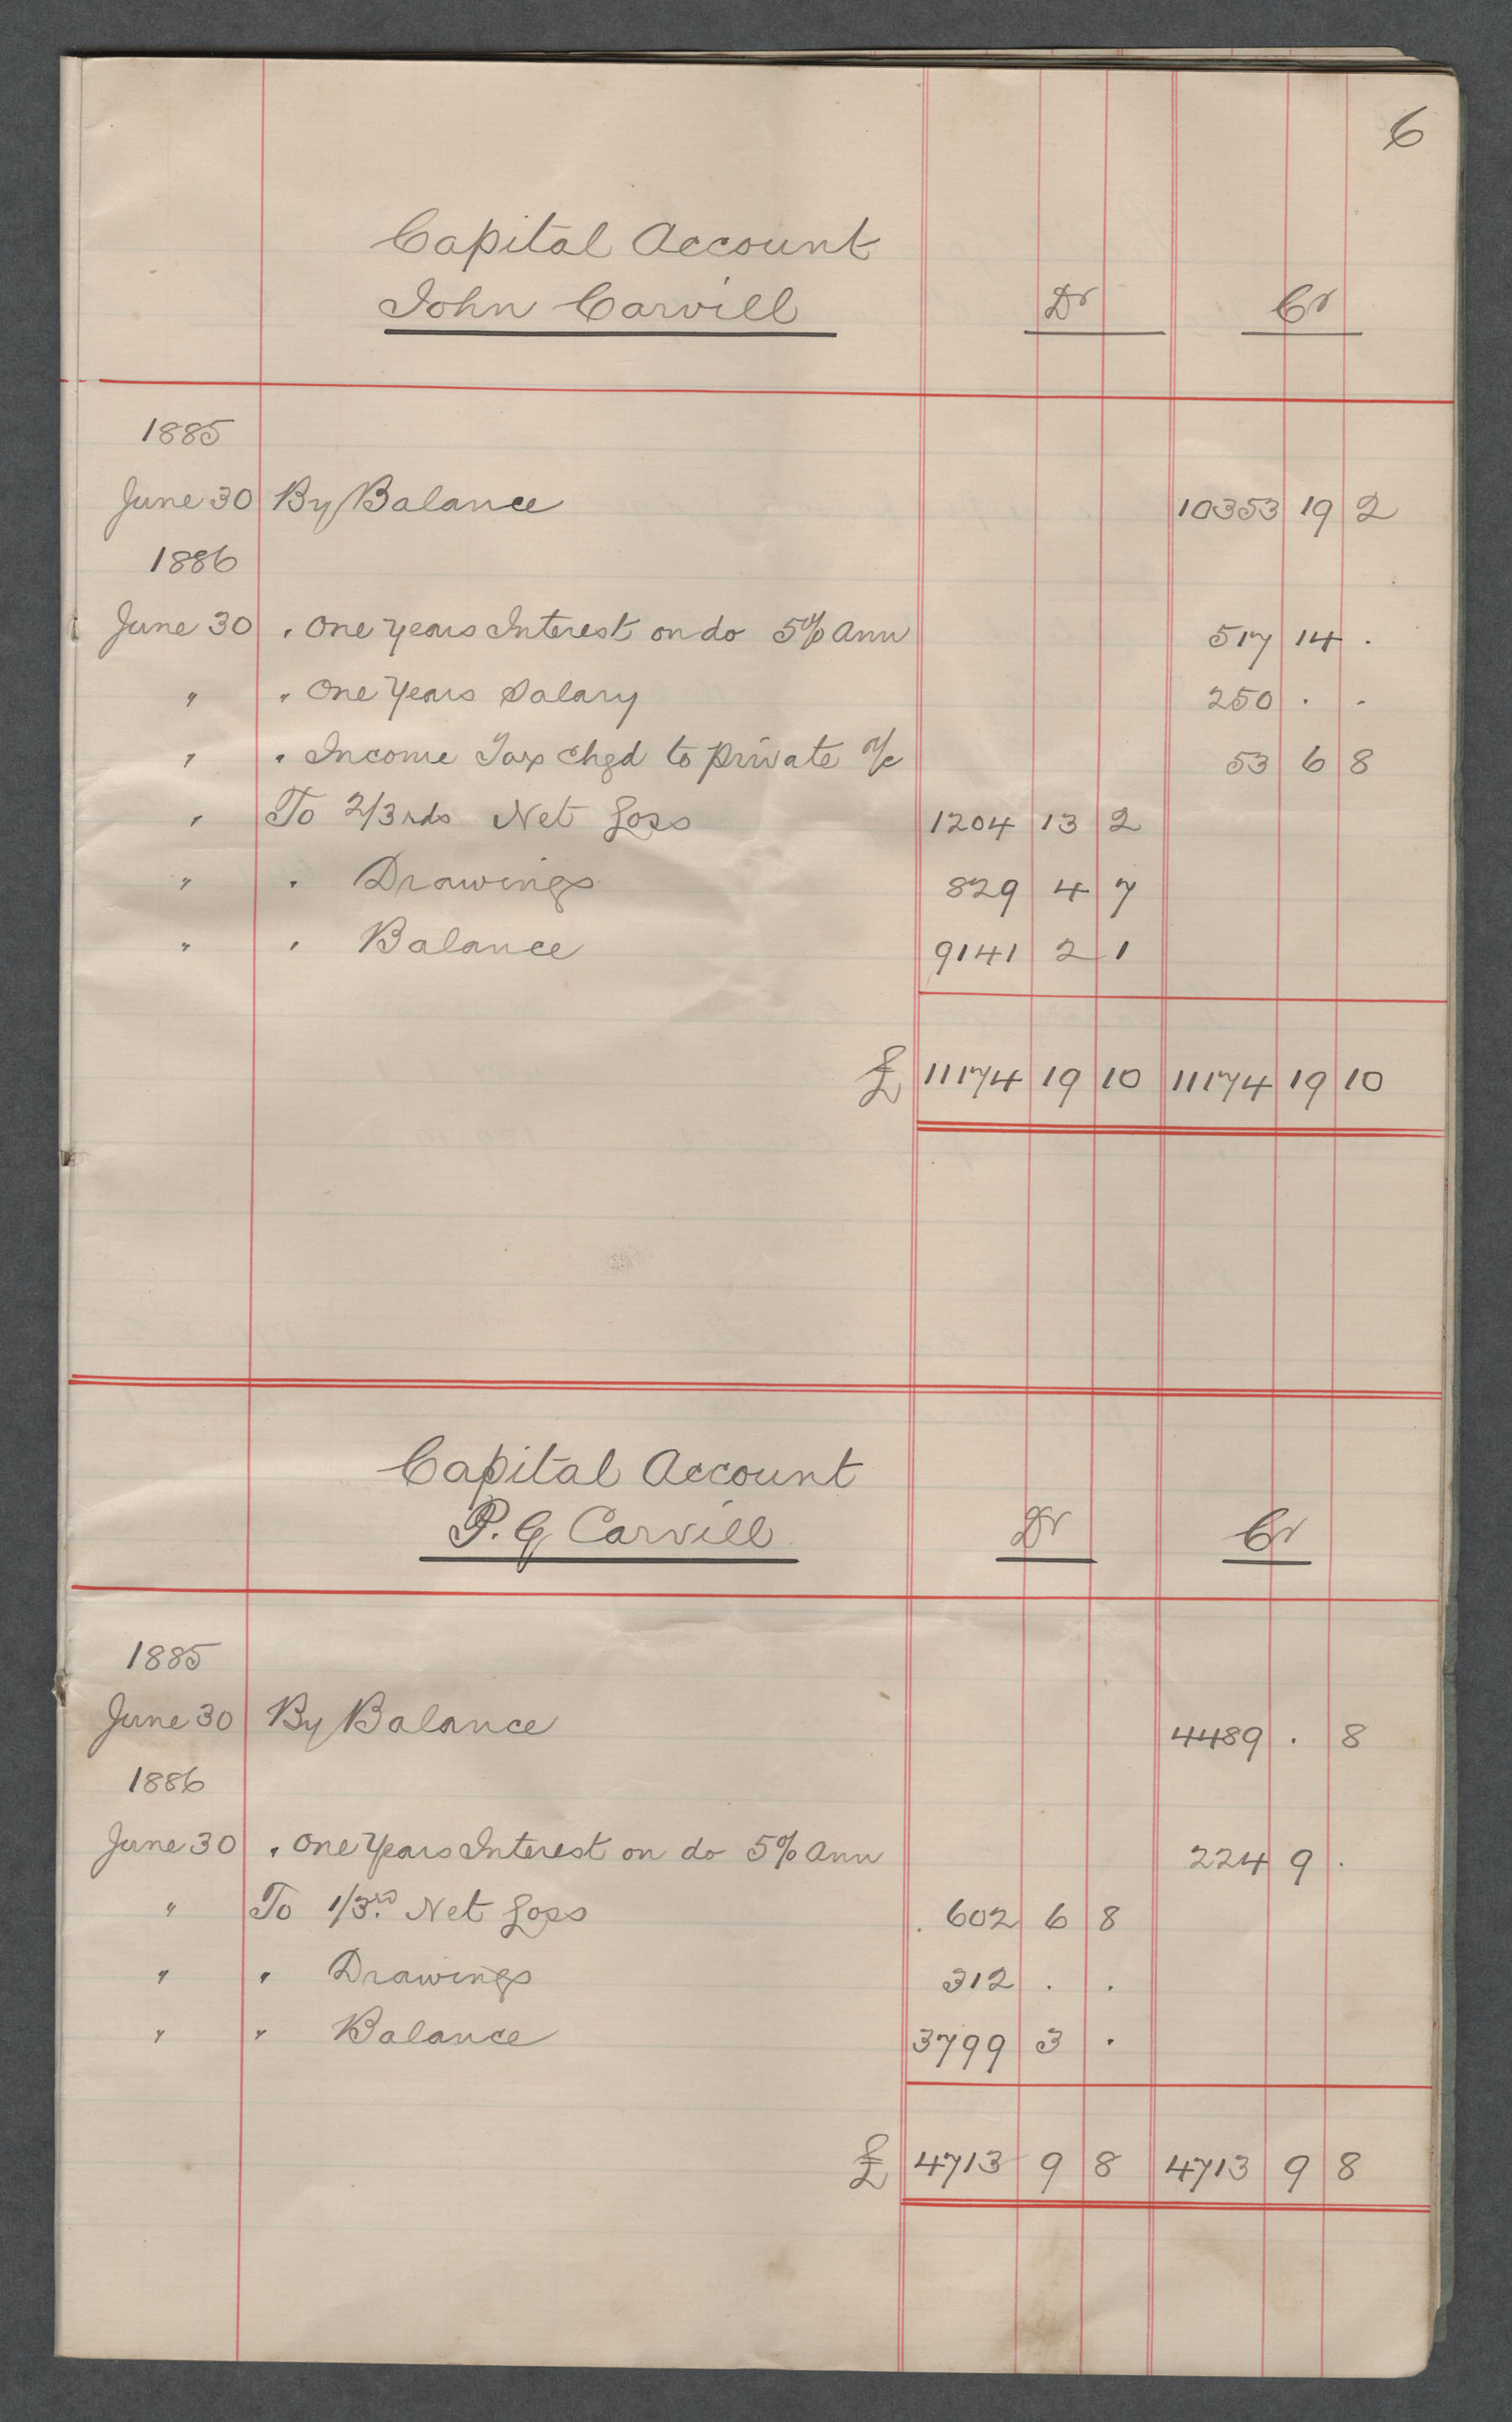 6
Capital Account
John Carvill Dr Cr
1885
June 30 By Balance 10353 19 2
1886
June 30 " One years Interest on do 5% Ann 517 14 .
" " One Years Salary 250 . .
" " Income Tax chgd to private a/c 53 6 8
" To 2/3rds Net Loss 1204 13 2
" " Drawings 829 4 7
" " Balance 9141 2 1
£ 11174 19 10 11174 19 10
Capital Account
P. G Carvill Dr Cr
1885
June 30 By Balance 4489 . 8
1886
June 30 " One Years Interest on do 5% Ann 224 9 .
" To 1/3rd Net Loss 602 6 8
" " Drawings 312 . .
" " Balance 3799 3 .
£ 4713 9 8 4713 9 8